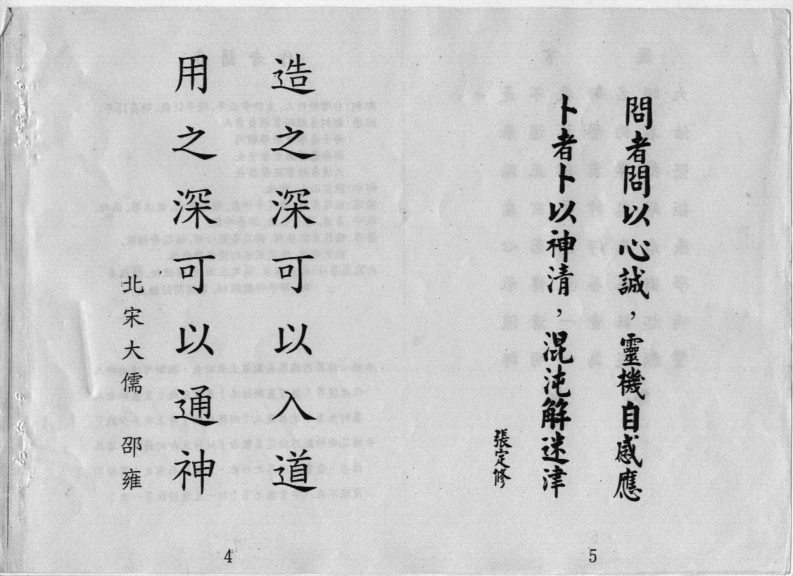 問者問以心誠，靈機自感應
卜者卜以神清，混沌解迷津
張定修
5
造之深可以入道
用之深可以通神
北宋大儒 邵雍
4